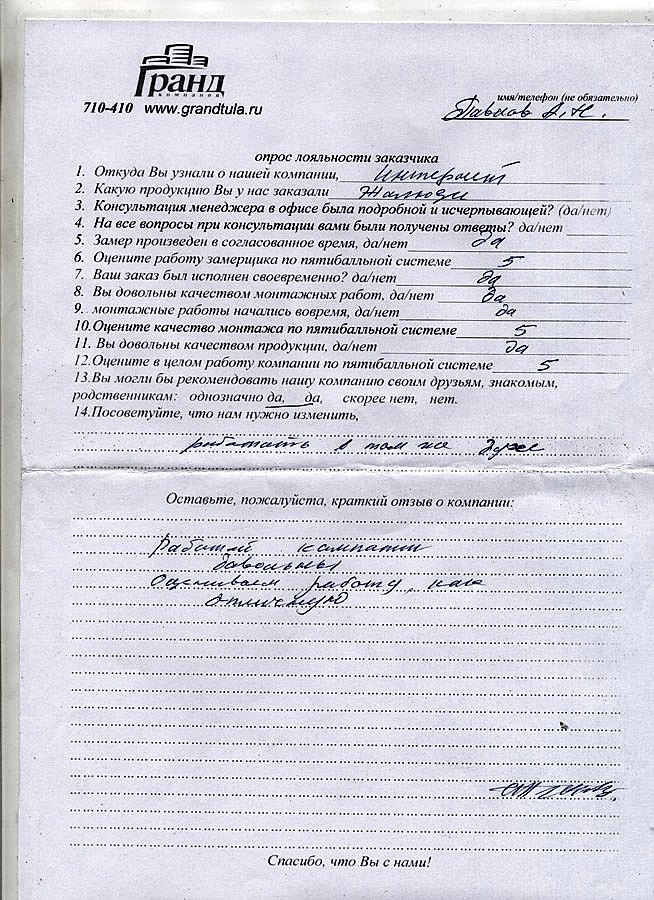 Гранд
компания
710-410 www.grandtula.ru
имя/телефон (не обязательно)
Павлов А.Н.
опрос лояльности заказчика
1. Откуда Вы узнали о нашей компании, интернет
2. Какую продукцию Вы у нас заказали Жалюзи
3. Консультация менеджера в офисе была подробной и исчерпывающей? (да/нет)
4. На все вопросы при консультации вами были получены ответы? да/нет
5. Замер произведен в согласованное время, да/нет да
6. Оцените работу замерщика по пятибалльной системе 5
7. Ваш заказ был исполнен своевременно? да/нет да
8. Вы довольны качеством монтажных работ, да/нет да
9. монтажные работы начались вовремя, да/нет да
10.Оцените качество монтажа по пятибалльной системе 5
11. Вы довольны качеством продукции, да/нет да
12.Оцените в целом работу компании по пятибалльной системе 5
13.Вы могли бы рекомендовать нашу компанию своим друзьям, знакомым,
родственникам: однозначно да, да, скорее нет, нет.
14.Посоветуйте, что нам нужно изменить,
работать в том же духе
Оставьте, пожалуйста, краткий отзыв о компании:
Работой компании
довольны
Оцениваем работу, как
отличную
Спасибо, что Вы с нами!